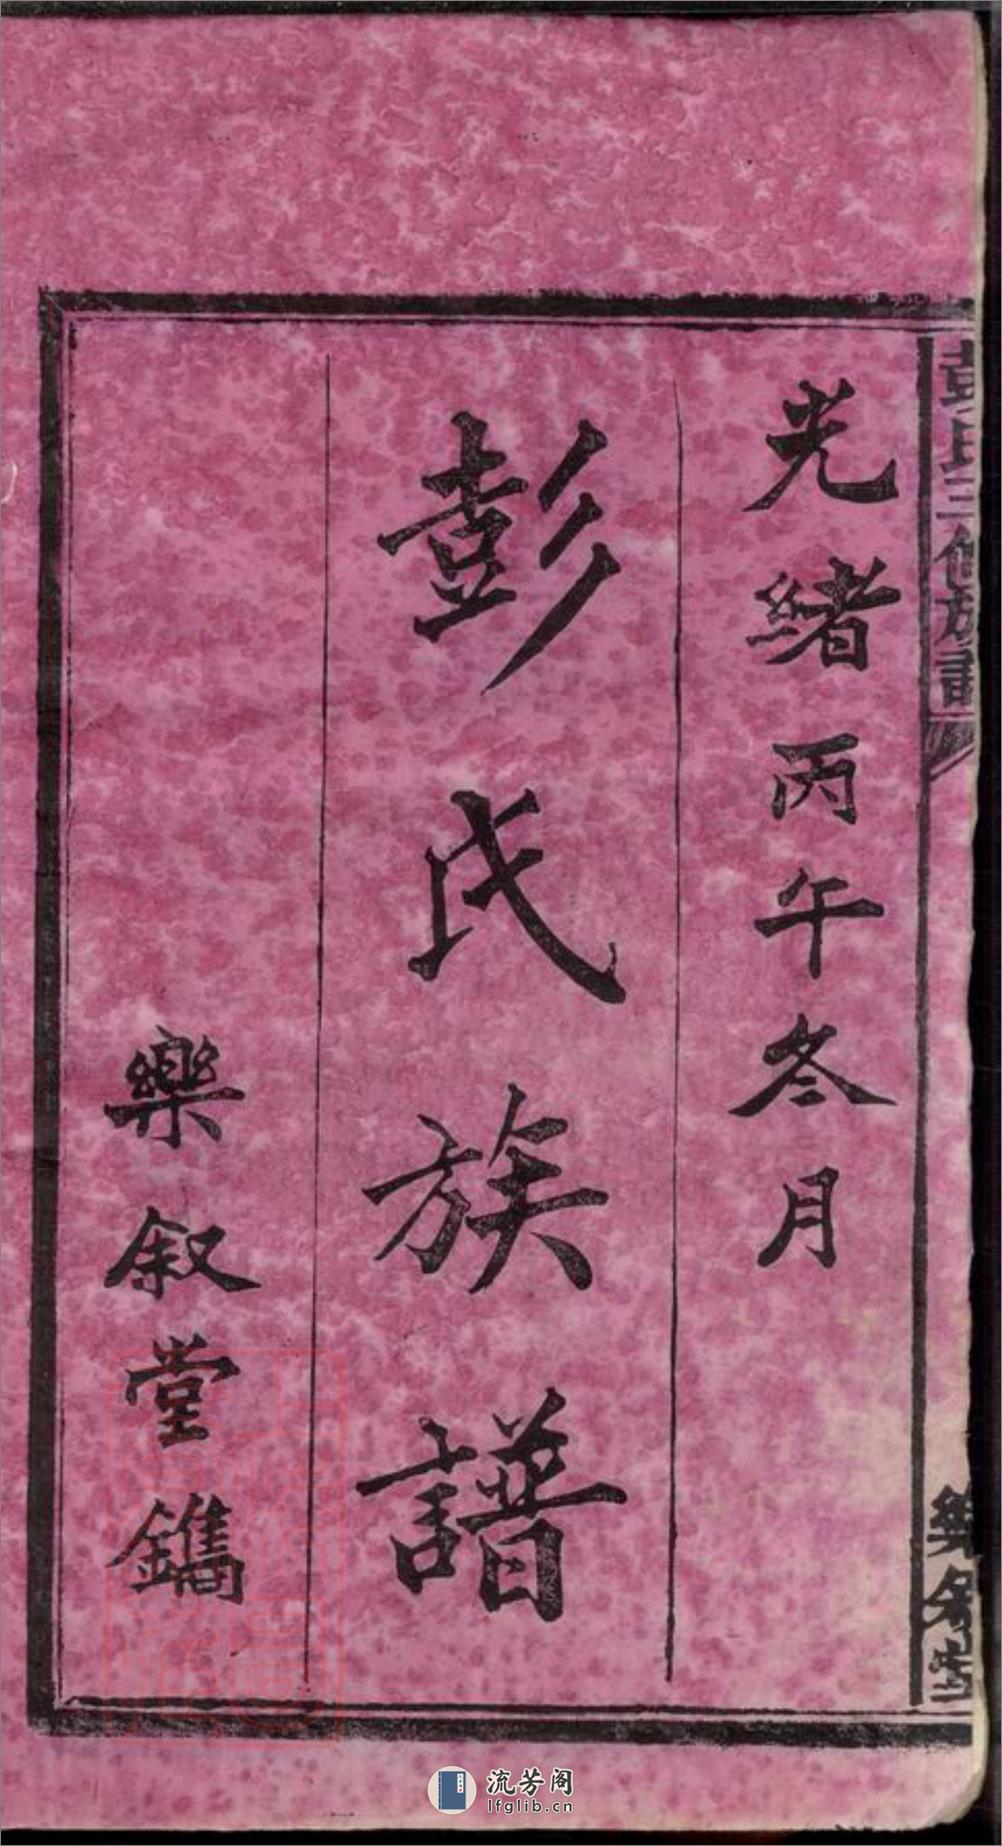 彭氏三修族譜
樂叙堂
光緒丙午冬月
彭氏族譜
樂叙堂鐫
流芳阁
lfglib.cn